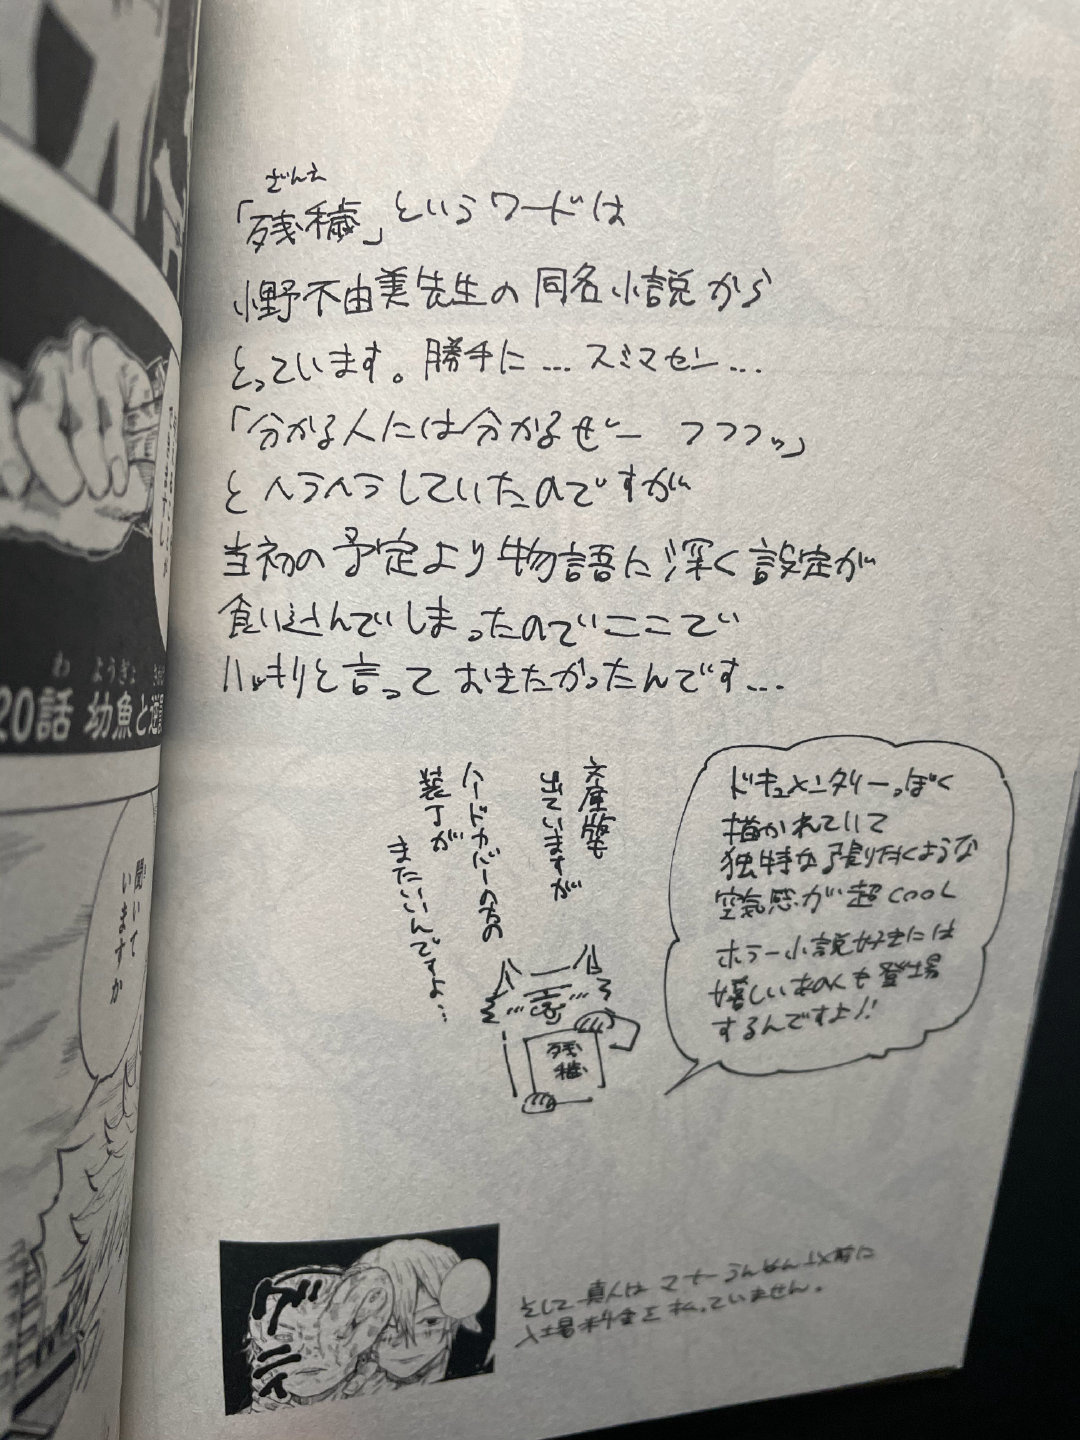 ざんえ
「残穢」というワードは
小野不由美先生の同名小説から
とっています。勝手に…スミマセン…
「分かる人には分かるぜー フフフッ」
とヘラヘラしていたのですが
当初の予定より物語に深く設定が
食い込んでしまったのでここで
ハッキリと言っておきたかったんです…
文庫版も
出ていますが
ハードカバーの方の
装丁が
またいいんですよ…
残
穢
ドキュメンタリーっぽく
描かれていて
独特な張り付くような
空気感が超COOL
ホラー小説好きには
嬉しいあの人も登場
するんですよ!!
そして真人はマナーうんぬん以前に
入場料金を払っていません。
わ ようぎょ
20話 幼魚と逆
聞いて
いますか